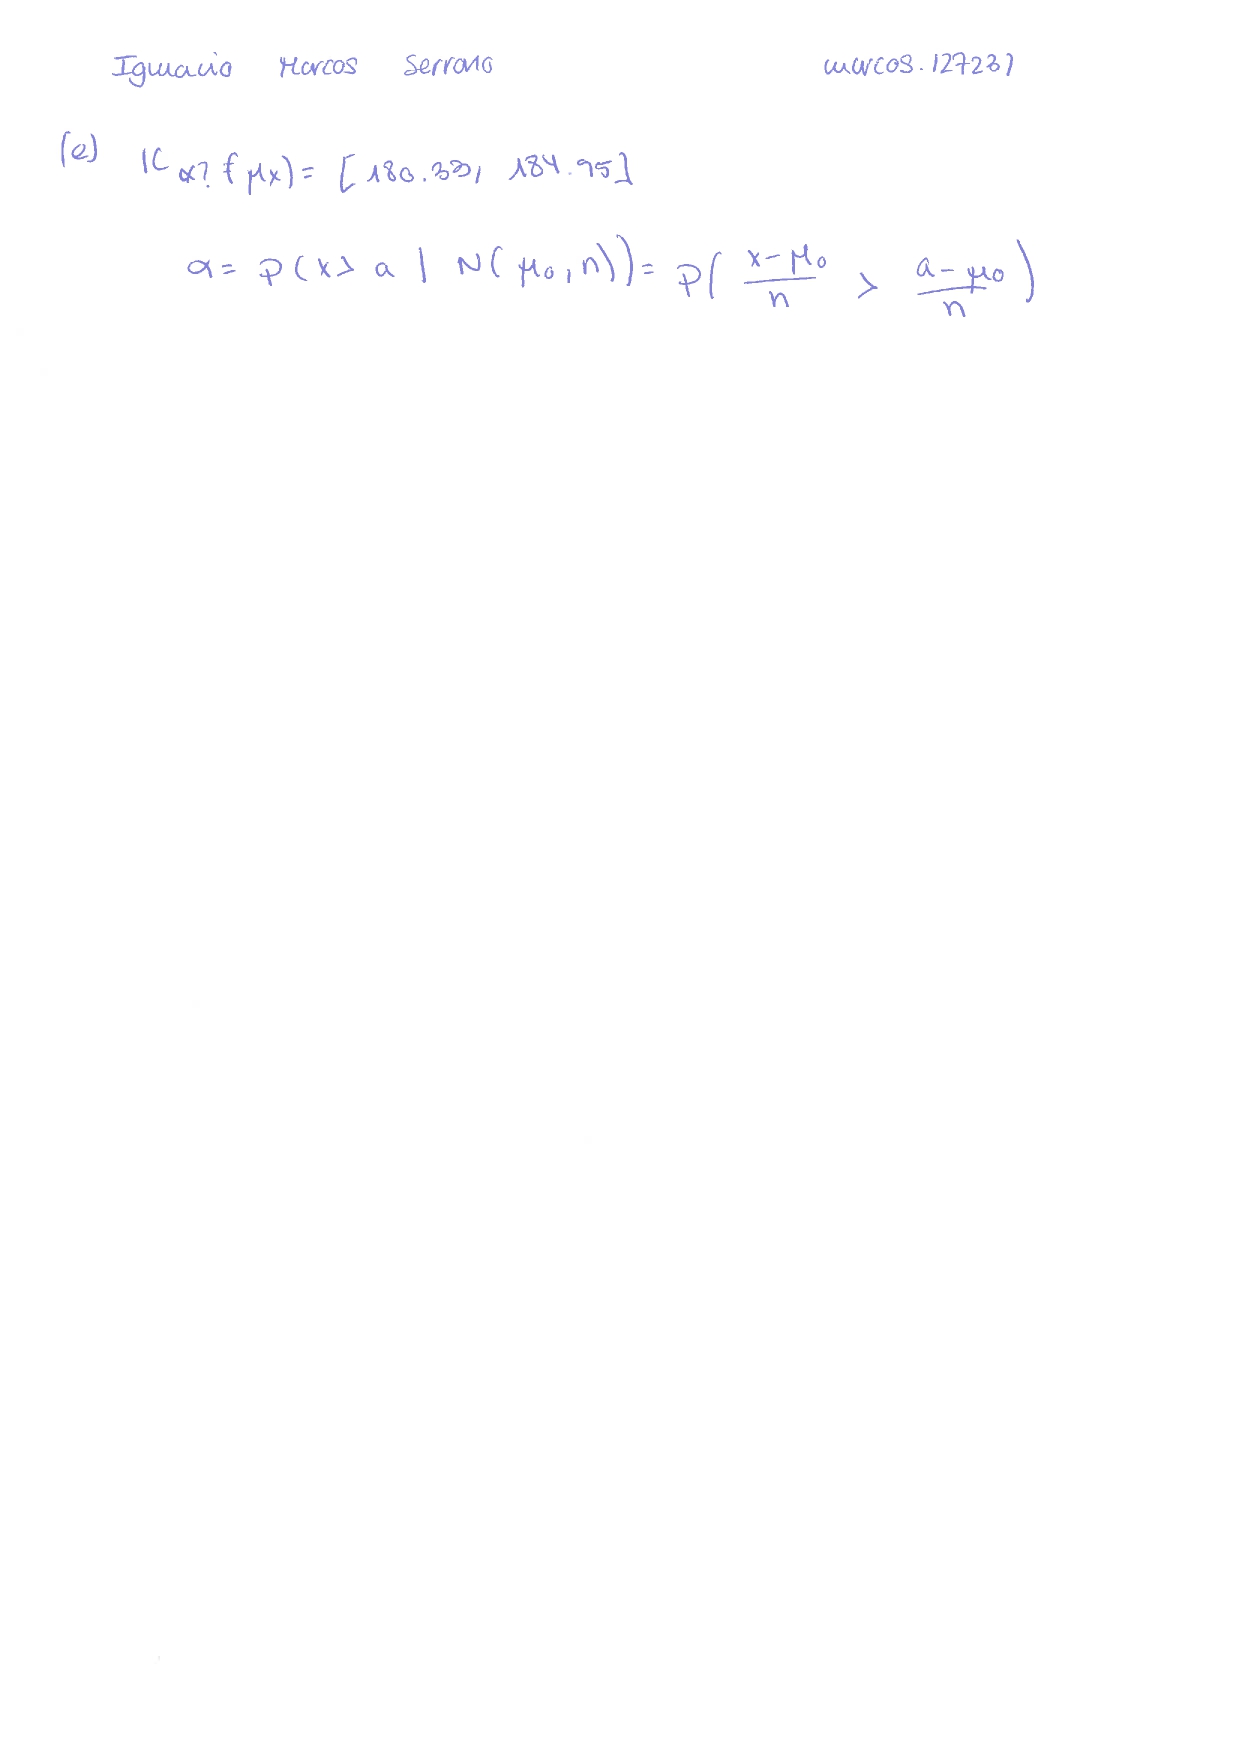 Ignacio Marcos Serrano marcos.127231
(e) IC α? (μx) = [180.33, 184.95]
α = P(x > a | N(μ₀, n)) = P( (x-μ₀)/n > (a-μ₀)/n )